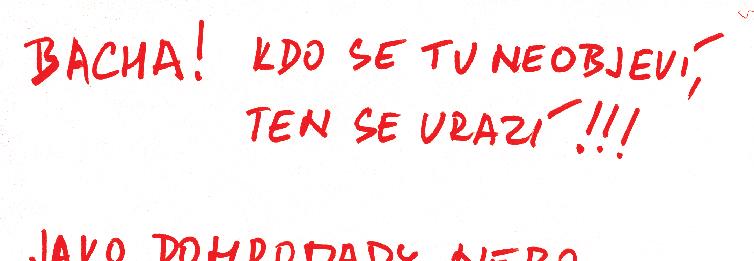 BACHA! KDO SE TU NEOBJEVÍ,
TEN SE URAZÍ!!!
JAKO NEBO